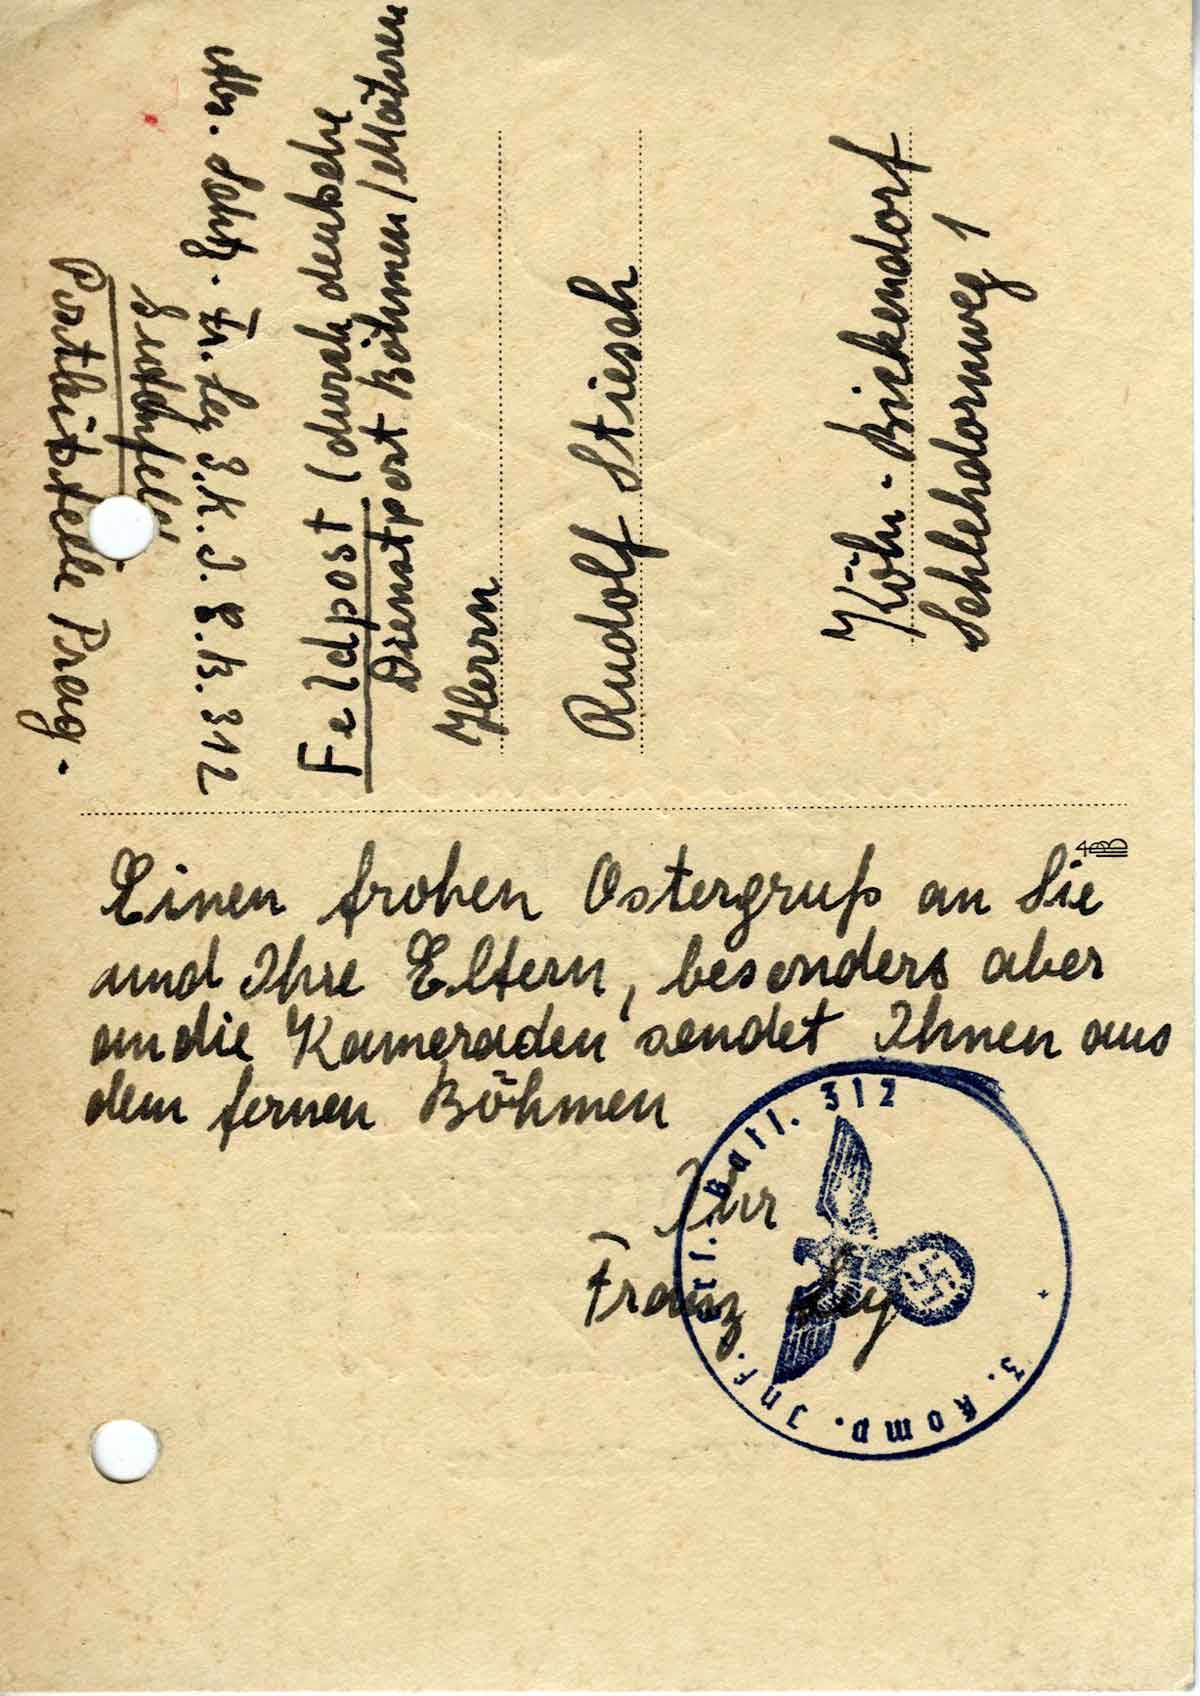 Einen frohen Ostergruß an Sie
und Ihre Eltern, besonders aber
an die Kameraden sendet Ihnen aus
dem fernen Böhmen
Ihr
Franz Ley
Feldpost (durch deutsche
Dienstpost Böhmen/Mähren
Herrn
Rudolf Stiesch
Köln-Bickendorf
Schlehdornweg 1
Abs. Schtz. Fr. Ley 3.K. J.E.B. 312
Postleitstelle Prag.
3. Komp. Inf. Batl. 312
400